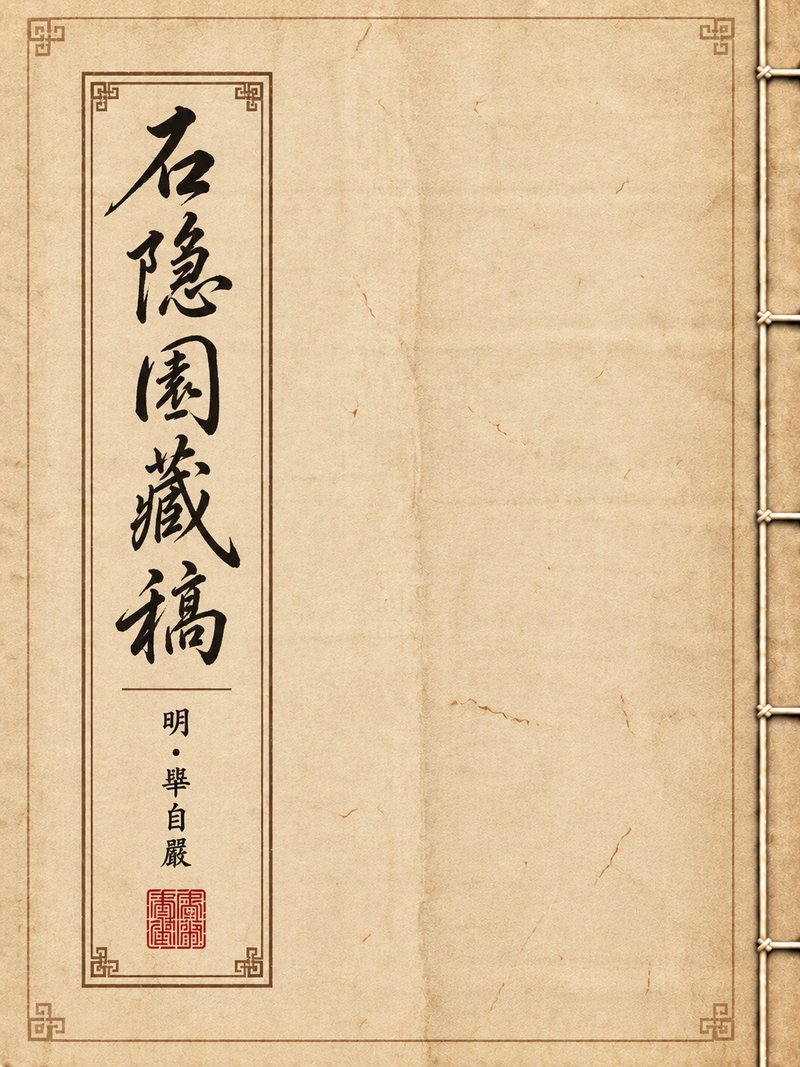 石隐園藏稿
明·畢自嚴